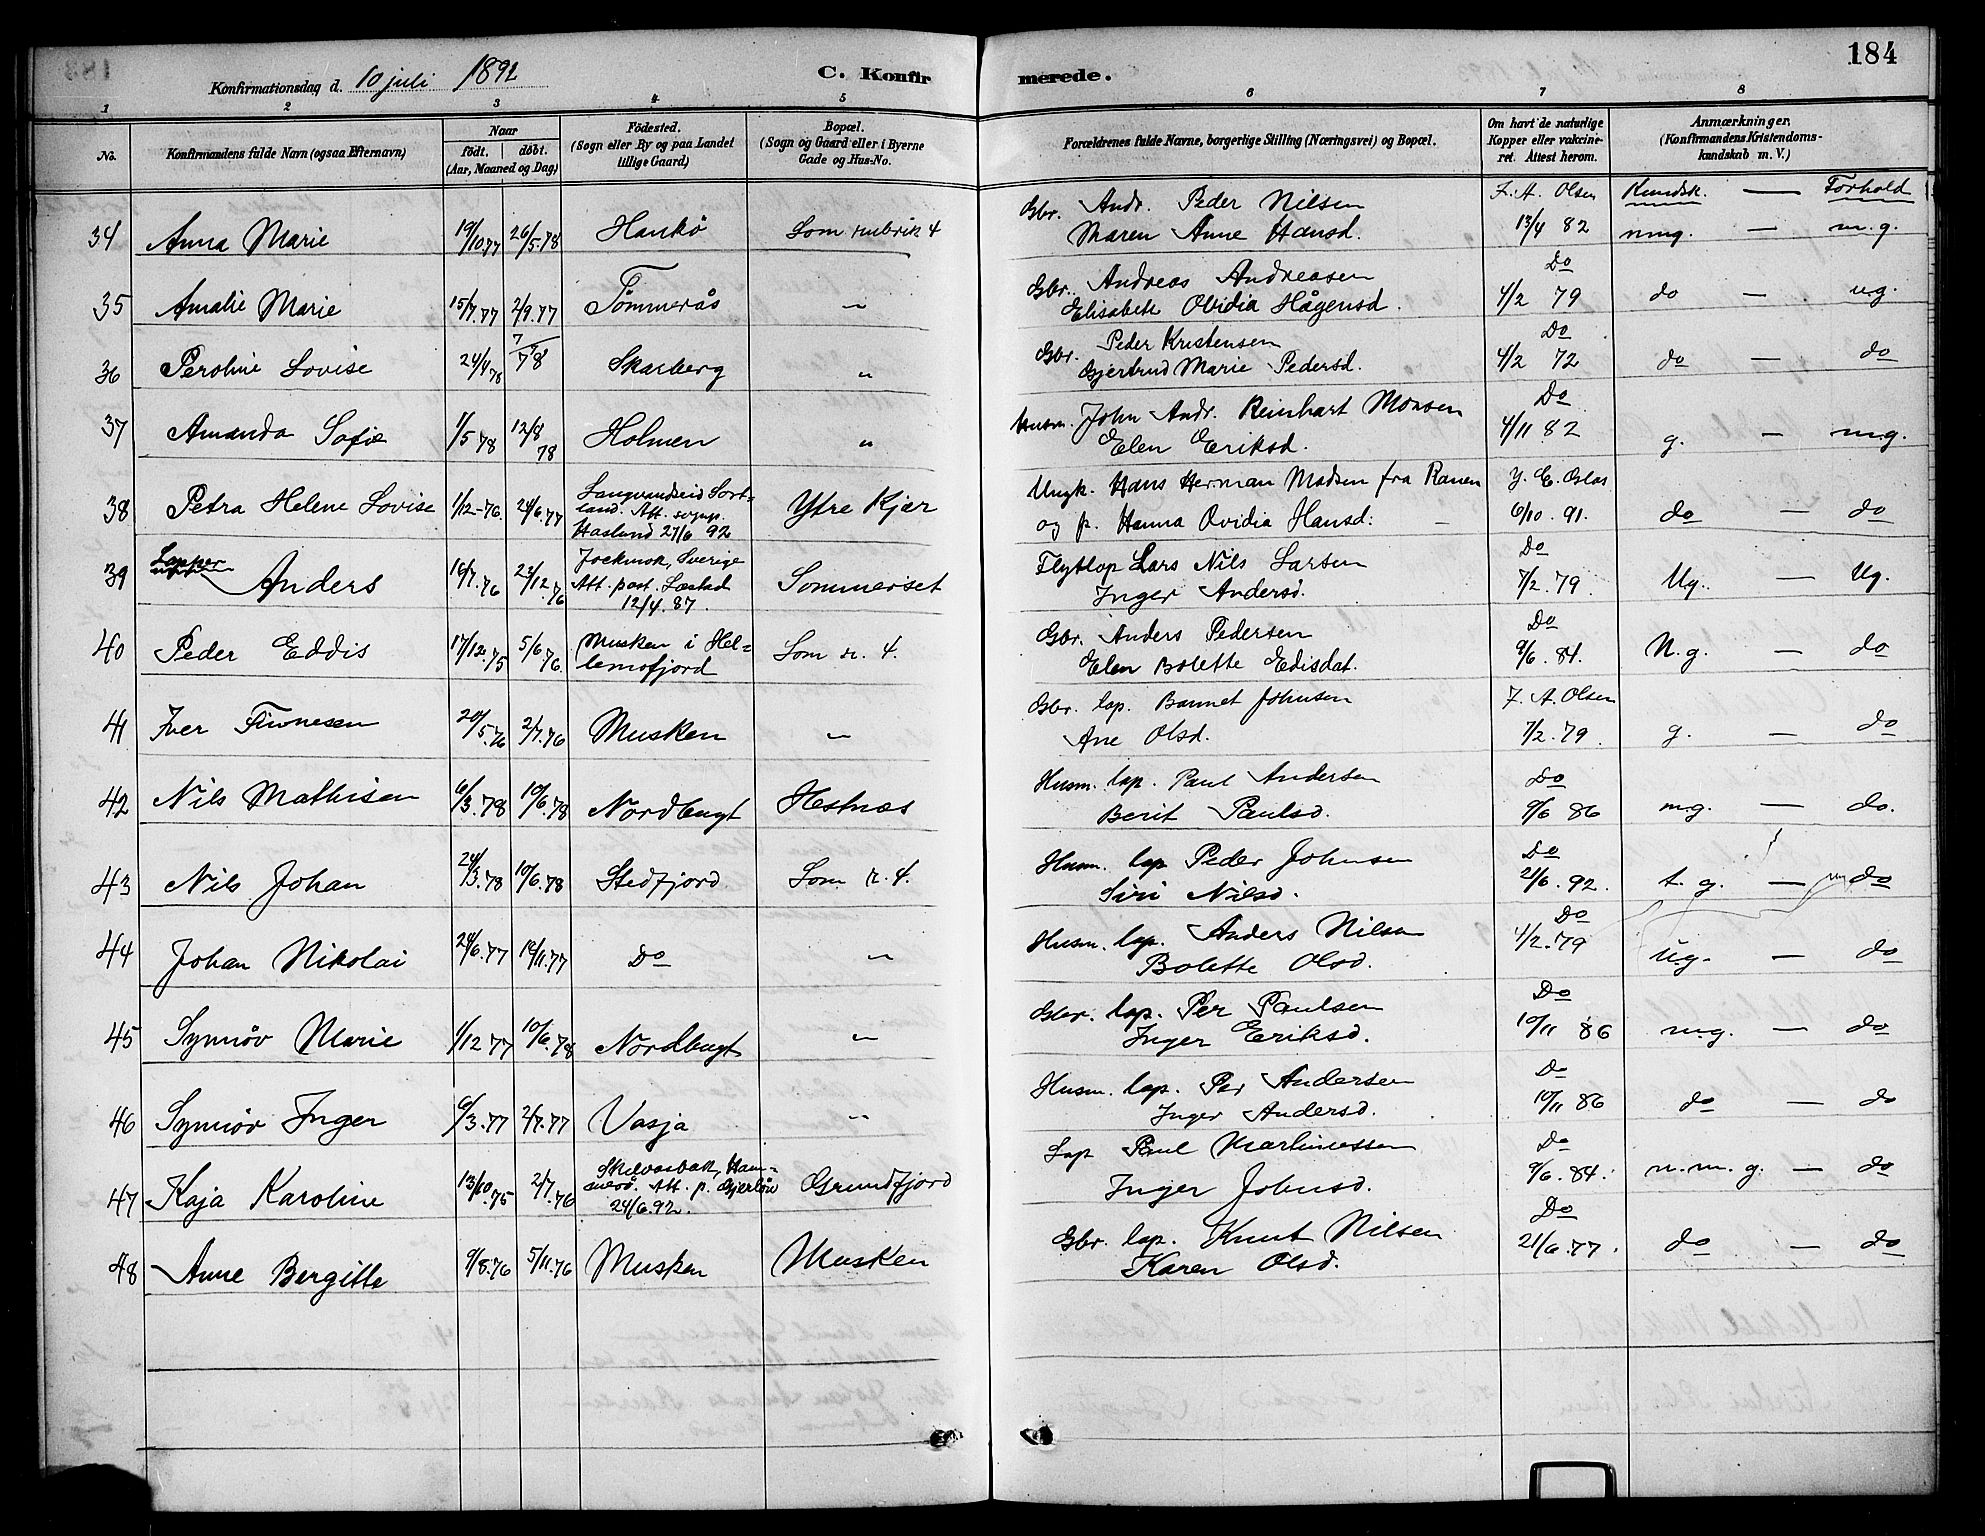 184
Konfirmationsdag d. 10 juli 1892
C. Konfirmerede.
1 2 3 4 5 6 7 8
No.
Konfirmandens fulde Navn (ogsaa Efternavn)
Naar
födt. döbt.
(Aar, Maaned og Dag)
Födested.
(Sogn eller By og paa Landet
tillige Gaard)
Bopæl.
(Sogn og Gaard eller i Byerne
Gade og Hus-No.
Forældrenes fulde Navne, borgerlige Stilling (Næringsvei) og Bopæl.
Om havt de naturlige
Kopper eller vakcine-
ret. Attest herom.
Anmærkninger,
(Konfirmandens Kristendoms-
kundskab m. V.)
Kundsk. — Forhold
34 Anna Marie 19/10 77 26/5.78 Hankö Som rubrik 4
Gbr. Andr. Peder Nilsen
Maren Anne Hansd.
F. A. Olsen
13/4 82 nmg. — m.g.
35 Amalie Marie 15/7.77 2/9.77 Tömmerås "
Gbr. Andreas Andreasen
Elisabeth Ovidia Hågensd.
Do
4/2 79 do — ug.
36 Peroline Lovise 24/4 78 7/7 78 Skarberg "
Gbr. Peder Kristensen
Gjertrud Marie Pedersd.
Do
4/2 72 do — do
37 Amanda Sofie 1/5 78 12/8 78 Holmen "
Husm. John Andr. Reinhart Monsen
Elen Eriksd.
Do
4/11 82 g. — m.g.
38 Petra Helene Lovise 1/12-76. 24/6.77
Langvandseid Sort-
land. Att. sognp.
Haslund 27/6 92
Ytre Kjær
Ungk. Hans Herman Madsen fra Ranen
og p. Hanna Ovidia Hansd.
6/10. 91. do — do
39 Lapper
Anders 16/7.76 23/12.76
Jockmok, Sverige
Att. past. Læstad
12/4. 87.
Sommerset
Flytlap Lars Nils Larsen
Inger Andersd.
Do
7/2. 79. Ug. — Ug.
40 Peder Eddis 17/12.75 5/6.76
Musken i Hel-
lemofjord
Som r. 4.
Gbr. Anders Pedersen
Elen Bolette Edisdat.
Do
9/6. 84. N.g. — do
41 Iver Finnesen 20/5.76 2/7.76 Musken "
Gbr. lap. Bannet Johnsen
Ane Olsd.
F. A. Olsen
7/2. 79. g. — do
42 Nils Mathisen 6/3.78 10/6.78 Nordbugt Hestnæs
Husm. lap. Paul Andersen
Berit Paulsd.
Do
9/6 86 m.g. — do.
43 Nils Johan 24/3.78 10/6.78 Stedfjord Som r. 4.
Husm. lap Peder Johnsen
Siri Nilsd.
Do
21/6. 92. t. g. — do
44 Johan Nikolai 24/6.77 18/11.77 Do "
Husm. lap. Anders Nilsen
Bolette Olsd.
Do
4/2.79 ug. — do
45 Synnöv Marie 1/12.77 10/6.78 Nordbugt "
Gbr. lap. Per Paulsen
Inger Eriksd.
Do
10/11 86 m.g. — do
46 Synnöv Inger 6/3.77 2/7.77 Vasja "
Husm. lap. Per Andersen
Inger Andersd.
Do
10/11 86 do — do
47 Kaja Karoline 13/10.75 2/7.76
Skilvasbak, Ham-
merö. Att. p. Gjerlöw
24/6.92.
Grundfjord
Lap Paul Martinussen
Inger Johnsd.
Do
9/6. 84. n. m. g. — do
48 Anne Bergitte 9/8.76 5/11.76 Musken Musken
Gbr. lap. Knut Nilsen
Karen Olsd.
Do
21/6.77. do — do